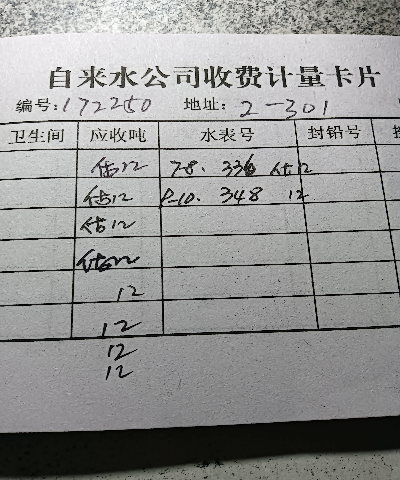 自来水公司收费计量卡片
编号:172250 地址: 2-301
卫生间 应收吨 水表号 封铅号
估12 7-8. 336 估12
估12 9-10. 348 12
估12
估12
12
12
12
12